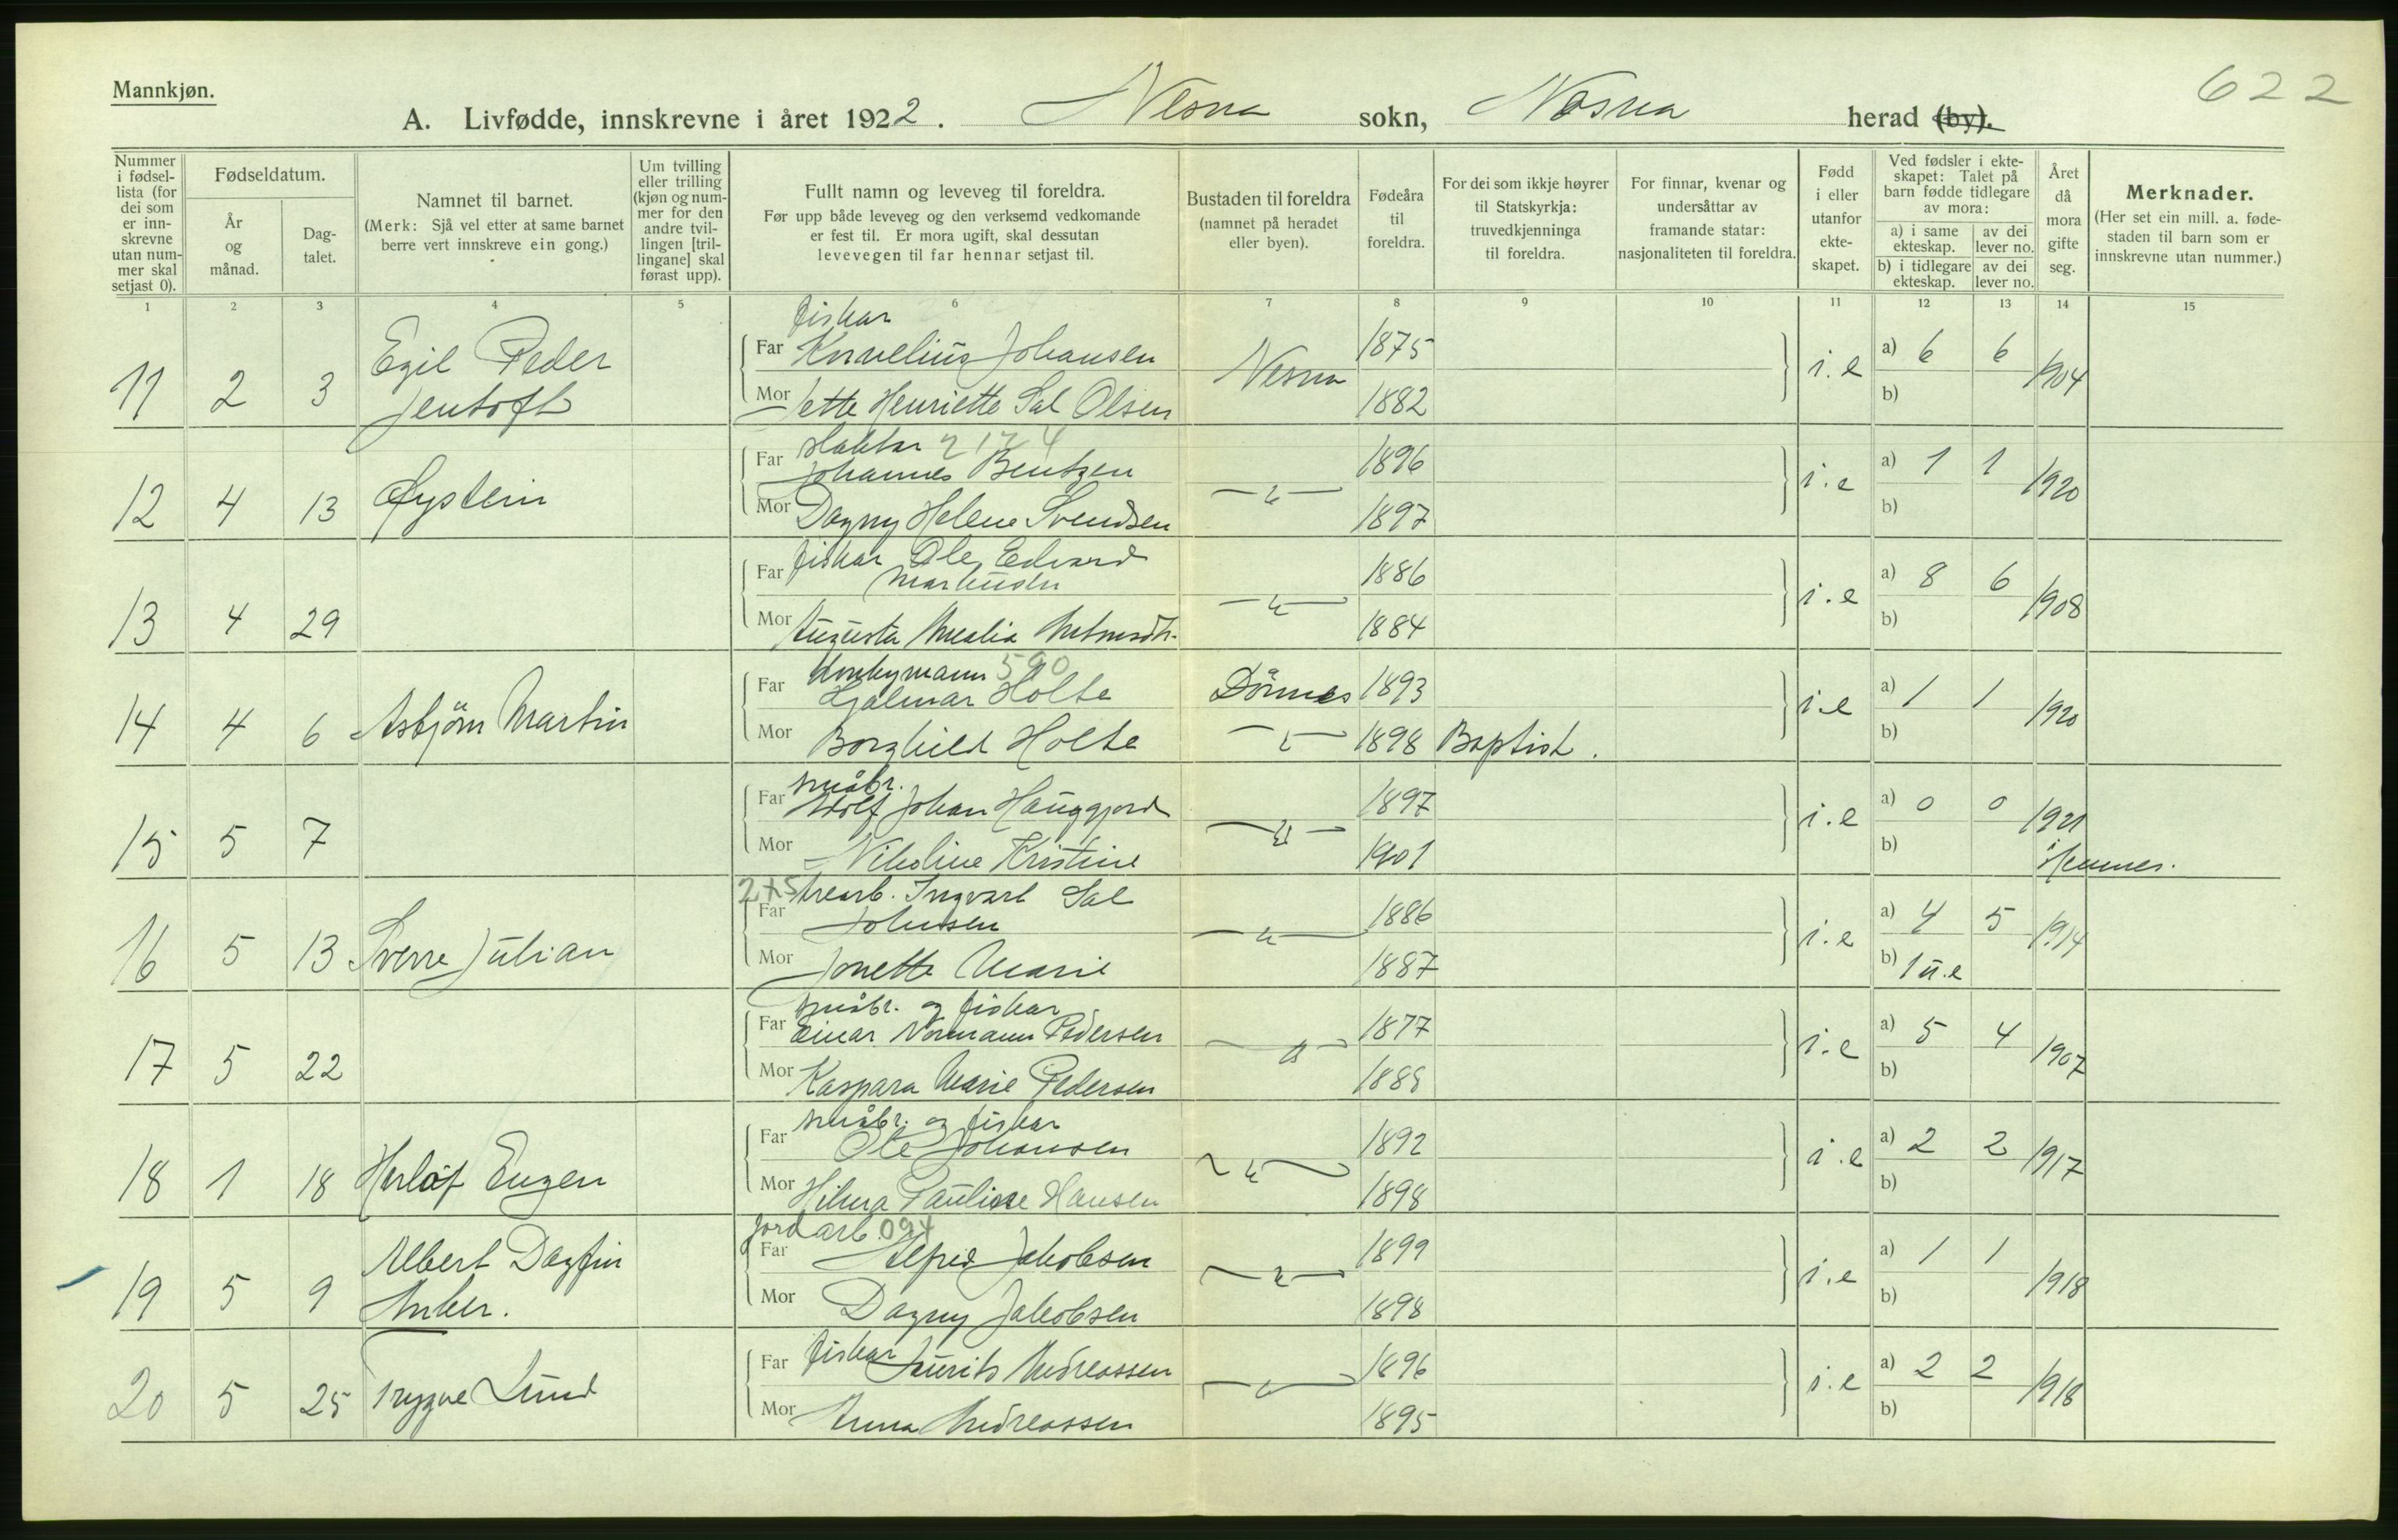 622
Mannkjøn.
A. Livfødde, innskrevne i året 1922. Nesna sokn, Nesna herad (by).
Nummer i fødsel-lista (for dei som er inn-skrevne utan num-mer skal setjast 0).
Fødseldatum.
År og månad.
Dag-talet.
Namnet til barnet.
(Merk: Sjå vel etter at same barnet berre vert innskreve ein gong.)
Um tvilling eller trilling (kjøn og num-mer for den andre tvil-lingen [tril-lingane] skal førast upp).
Fullt namn og leveveg til foreldra.
Før upp både leveveg og den verksemd vedkomande er fest til. Er mora ugift, skal dessutan levevegen til far hennar setjast til.
Bustaden til foreldra (namnet på heradet eller byen).
Fødeåra til foreldra.
For dei som ikkje høyrer til Statskyrkja: truvedkjenninga til foreldra.
For finnar, kvenar og undersåttar av framande statar: nasjonaliteten til foreldra.
Fødd i eller utanfor ekte-skapet.
Ved fødsler i ekte-skapet: Talet på barn fødde tidlegare av mora:
a) i same ekteskap. av dei lever no.
b) i tidlegare ekteskap. av dei lever no.
Året då mora gifte seg.
Merknader.
(Her set ein mill. a. føde-staden til barn som er innskrevne utan nummer.)
1 2 3 4 5 6 7 8 9 10 11 12 13 14 15
fiskar
11 2 3 Egil Peder Jentoft
Far Kornelius Johansen Nesna 1875 i.e a) 6 6 1904
Mor Jette Henriette Sal Olsen 1882 b)
12 4 13 Øystein
Far Johannes Bentzen 1896 i.e a) 1 1 1920
Mor Dagny Helene Svendsen 1897 b)
13 4 29
Far fiskar Ole Edvard Markusen 1886 i.e a) 8 6 1908
Mor Augusta Amalia 1884 b)
590
14 4 6 Asbjörn Martin
Far Hjalmar Holte Dönnes 1893 i.e a) 1 1 1920
Mor Borghild Holte 1898 Baptist. b)
småbr.
15 5 7
Far Adolf Johan Hauggjord 1897 i.e a) 0 0 1921
Mor Nikoline Kristine 1901 b) Hemnes.
16 5 13 Sverre Julian
Far trearb. Ingvart Sal Johnsen 1886 i.e a) 4 5 1914
Mor Jonette Marie 1887 b) 1 u.e
småbr. og fiskar
17 5 22
Far Einar Normann Pedersen 1877 i.e a) 5 4 1907
Mor Kaspara Marie Pedersen 1888 b)
småbr. og fiskar
18 1 18 Herlof Eugen
Far Ole Johansen 1892 i.e a) 2 2 1917
Mor Hilma Pauline Hansen 1898 b)
jordarb. 094
19 5 9 Albert Dagfin Anker.
Far Alfred Jakobsen 1899 i.e a) 1 1 1918
Mor Dagny Jakobsen 1898 b)
20 5 25 Trygve Lund
Far fiskar Laurits Andreassen 1896 i.e a) 2 2 1918
Mor Anna Andreassen 1895 b)